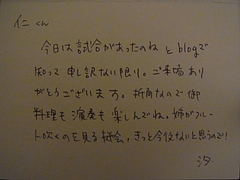 仁くん
今日は試合があったのねとblogで
知って申し訳ない限り。ご来場あり
がとうございます。折角なので御
料理も演奏も楽しんでね。姉がフルー
ト吹くのを見る機会、きっと今後ないと思うので!
汐